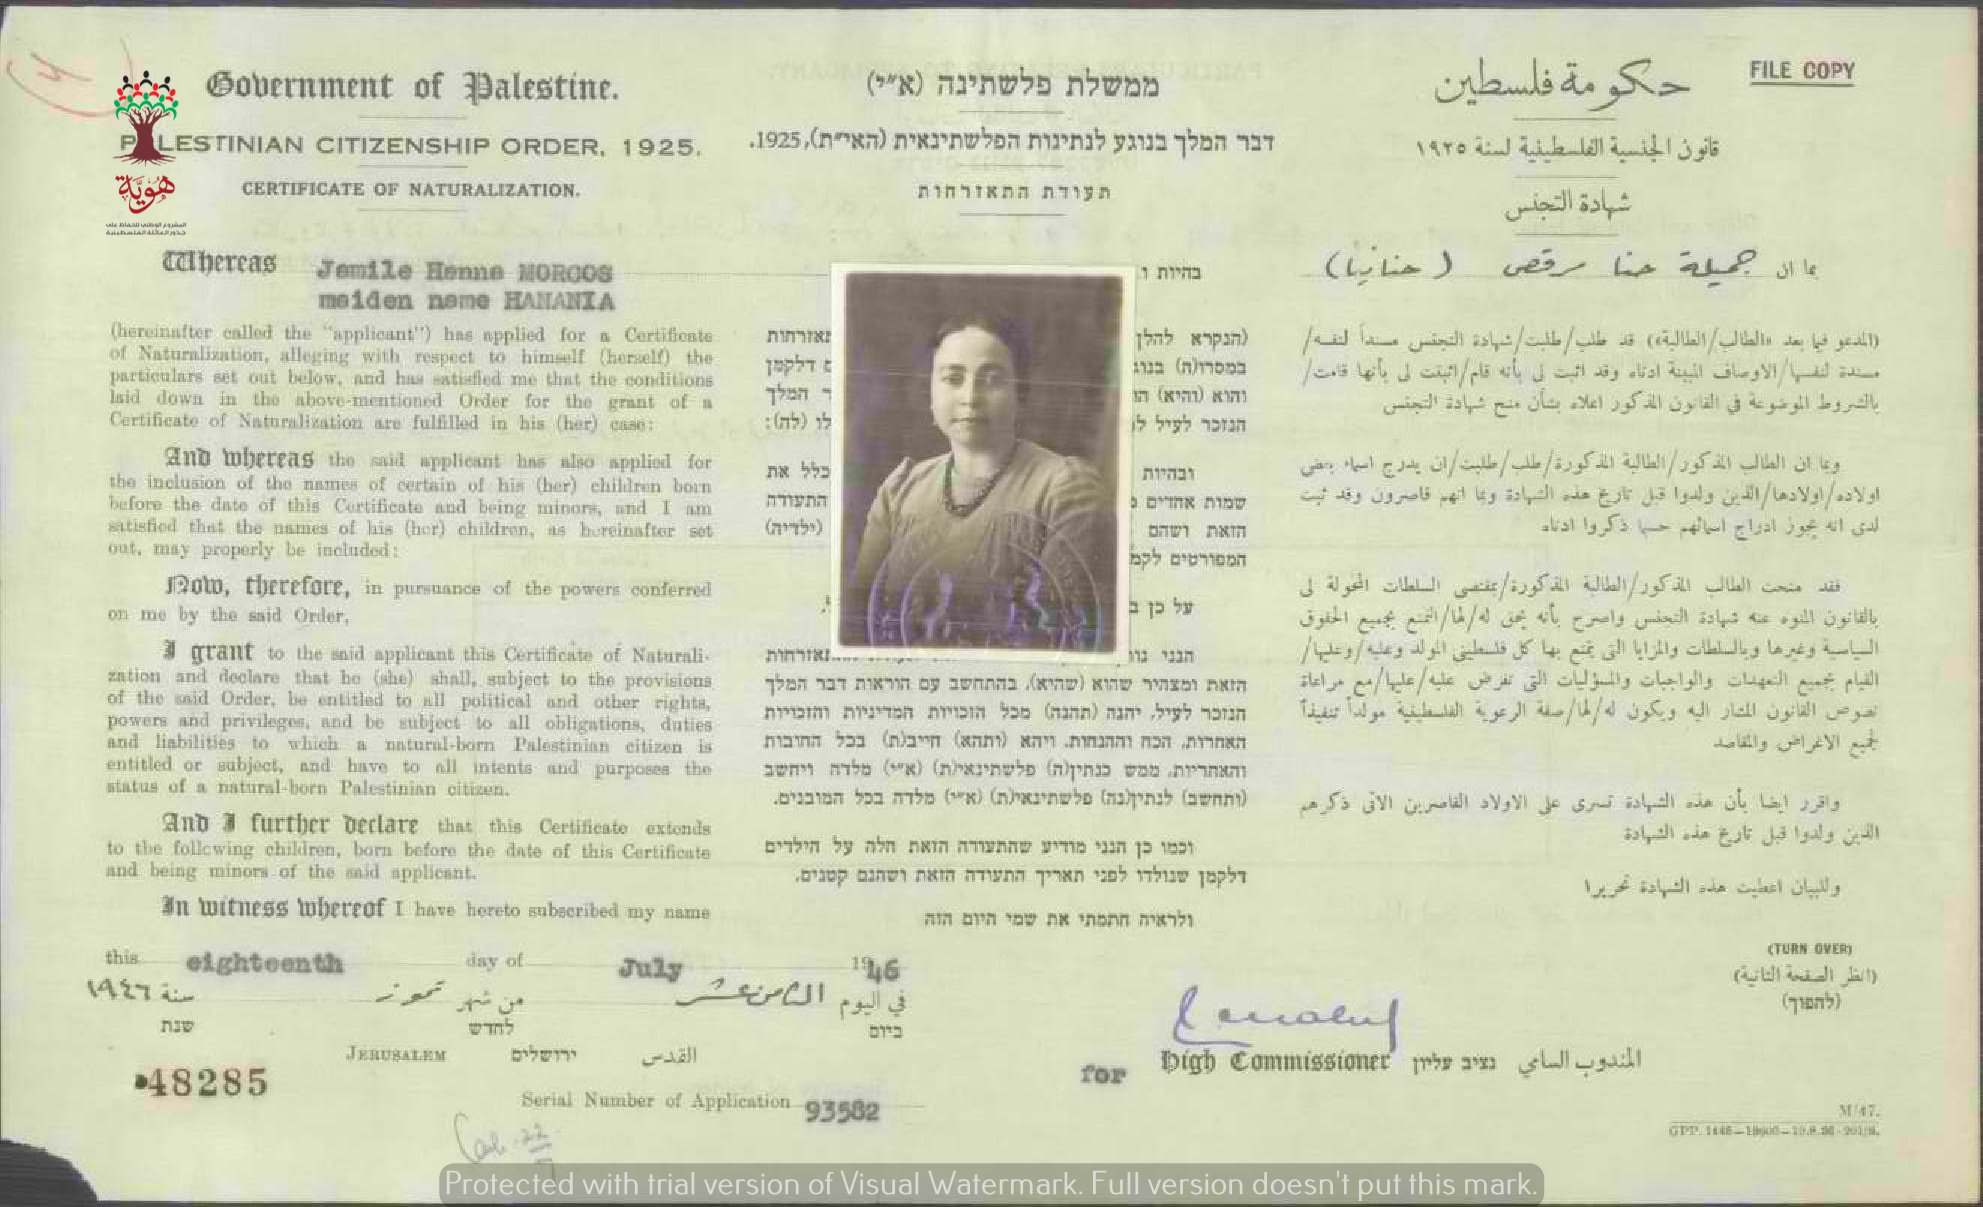 FILE COPY
Government of Palestine.
ממשלת פלשתינה (א״י)
حكومة فلسطين
PALESTINIAN CITIZENSHIP ORDER, 1925.
דבר המלך בנוגע לנתינות הפלשתינאית (הא״ית), 1925.
قانون الجنسية الفلسطينية لسنة ١٩٢٥
CERTIFICATE OF NATURALIZATION.
תעודת התאזרחות
شهادة التجنس
هوية
المشروع الوطني للحفاظ على
جذور العائلة الفلسطينية
Whereas Jemile Henne MORCOS
maiden name HANANIA
(hereinafter called the "applicant") has applied for a Certificate
of Naturalization, alleging with respect to himself (herself) the
particulars set out below, and has satisfied me that the conditions
laid down in the above-mentioned Order for the grant of a
Certificate of Naturalization are fulfilled in his (her) case:
And whereas the said applicant has also applied for
the inclusion of the names of certain of his (her) children born
before the date of this Certificate and being minors, and I am
satisfied that the names of his (her) children, as hereinafter set
out, may properly be included:
Now, therefore, in pursuance of the powers conferred
on me by the said Order,
I grant to the said applicant this Certificate of Naturali-
zation and declare that he (she) shall, subject to the provisions
of the said Order, be entitled to all political and other rights,
powers and privileges, and be subject to all obligations, duties
and liabilities to which a natural-born Palestinian citizen is
entitled or subject, and have to all intents and purposes the
status of a natural-born Palestinian citizen.
And I further declare that this Certificate extends
to the following children, born before the date of this Certificate
and being minors of the said applicant.
In witness whereof I have hereto subscribed my name
בהיות ו
(הנקרא להלן
במסרו(ה) בנוג
והוא (והיא) הו
הנזכר לעיל ל
ר המלך
לו (לה):
ובהיות
כלל את
שמות אחדים
התעודה
הזאת ושהם
(ילדיה)
המפורטים לקמ
על כן ב
הזאת ומצהיר שהוא (שהיא), בהתחשב עם הוראות דבר המלך
הנזכר לעיל, יהנה (תהנה) מכל הזכויות המדיניות והזכויות
האחרות, הכח וההנחות, ויהא (ותהא) חייב(ת) בכל החובות
והאחריות, ממש כנתין(ה) פלשתינאי(ת) (א״י) מלדה ויחשב
(ותחשב) לנתין(נה) פלשתינאי(ת) (א״י) מלדה בכל המובנים.
וכמו כן הנני מודיע שהתעודה הזאת חלה על הילדים
דלקמן שנולדו לפני תאריך התעודה הזאת ושהנם קטנים.
ולראיה חתמתי את שמי היום הזה
بما ان جميلة حنا مرقص (حنانيا)
(المدعو فيما بعد «الطالب/الطالبة») قد طلب/طلبت/شهادة التجنس مسنداً لنفسه/
مسندة لنفسها/الاوصاف المبينة ادناه وقد اثبت لي بأنه قام/اثبتت لي بأنها قامت/
بالشروط الموضوعة في القانون المذكور اعلاه بشأن منح شهادة التجنس
وبما ان الطالب المذكور/الطالبة المذكورة/طلب/طلبت/ان يدرج اسماء بعض
اولاده/اولادها/الذين ولدوا قبل تاريخ هذه الشهادة وبما انهم قاصرون وقد ثبت
لدي انه يجوز ادراج اسمائهم حسبما ذكروا ادناه
فقد منحت الطالب المذكور/الطالبة المذكورة/بمقتضى السلطات المخولة لي
بالقانون المنوه عنه شهادة التجنس واصرح بأنه يحق له/لها/التمتع بجميع الحقوق
السياسية وغيرها وبالسلطات والمزايا التي يتمتع بها كل فلسطيني المولد وعليه/وعليها/
القيام بجميع التعهدات والواجبات والمسؤليات التي تفرض عليه/عليها/مع مراعاة
نصوص القانون المشار اليه ويكون له/لها/صفة الرعوية الفلسطينية مولداً تنفيذاً
لجميع الاغراض والمقاصد
واقرر ايضا بأن هذه الشهادة تسري على الاولاد القاصرين الآتي ذكرهم
الذين ولدوا قبل تاريخ هذه الشهادة
وللبيان اعطيت هذه الشهادة تحريرا
this eighteenth day of July 1946
في اليوم الثامن عشر من شهر تموز سنة ١٩٤٦
ביום לחדש שנת
(TURN OVER)
(انظر الصفحة الثانية)
(להפוך)
JERUSALEM ירושלים القدس
for High Commissioner נציב עליון المندوب السامي
48285
Serial Number of Application 93582
M/47.
Protected with trial version of Visual Watermark. Full version doesn't put this mark.